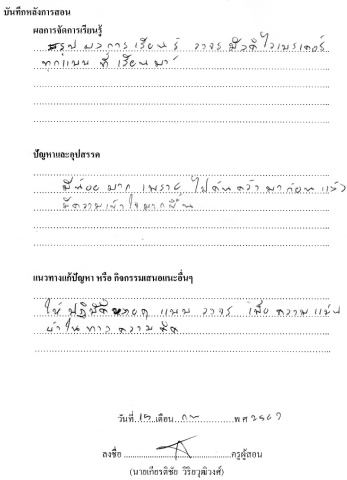 บันทึกหลังการสอน
ผลการจัดการเรียนรู้
สรุป ผลการเรียนรู้ วงจร มัลติไวเบรเตอร์
ทุกแบบ ที่ เรียนมา
ปัญหาและอุปสรรค
มีน้อยมาก เพราะ ไปค้นคว้ามาก่อนแล้ว
มีความเข้าใจมากขึ้น
แนวทางแก้ปัญหา หรือ กิจกรรมเสนอแนะอื่นๆ
ให้ ปฏิบัติ แบบ วงจร เพื่อ ความแม่น
ยำใน ความคิด
วันที่ 15 เดือน กย พ ศ 2567
ลงชื่อ ครูผู้สอน
(นายเกียรติชัย วิริยวุฒิวงศ์)